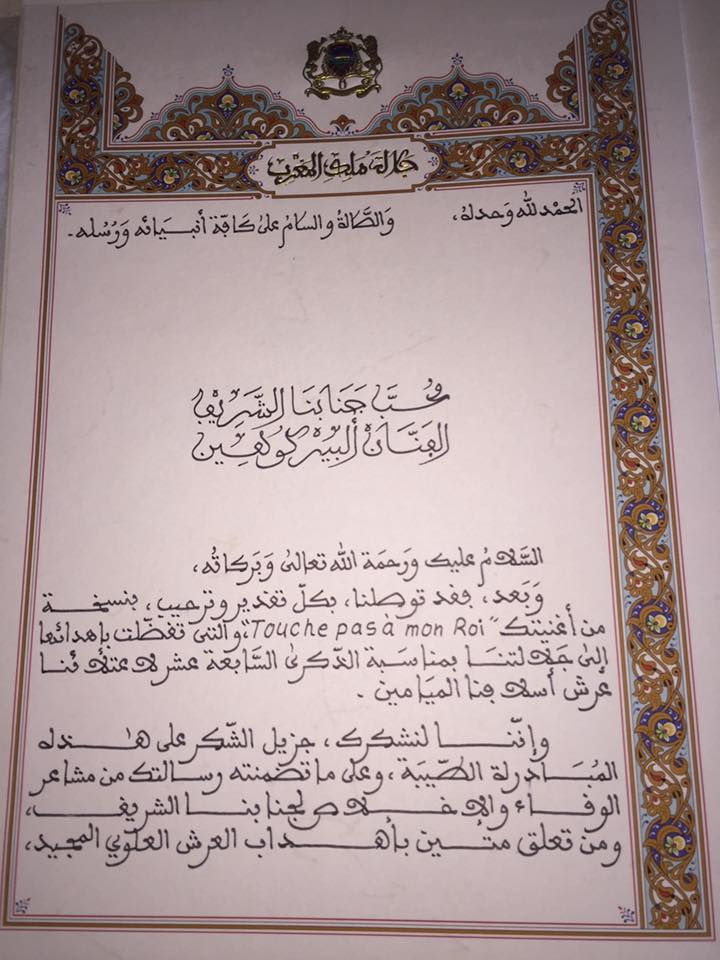 جلالة ملك المغرب
الحمد لله وحده، والصلاة والسلام على كافة أنبيائه ورسله.
محب جنابنا الشريف
الفنان ألبير كوهين
السلام عليك ورحمة الله تعالى وبركاته،
وبعد، فقد توصلنا، بكل تقدير وترحيب، بنسخة
من أغنيتك "Touche pas à mon Roi"، والتي تفضلت بإهدائها
إلى جلالتنا بمناسبة الذكرى السابعة عشر لاعتلائنا
عرش أسلافنا الميامين.
وإننا لنشكرك، جزيل الشكر على هذه
المبادرة الطيبة، وعلى ما تضمنته رسالتك من مشاعر
الوفاء والإخلاص لجنابنا الشريف،
ومن تعلق متين بأهداب العرش العلوي المجيد،